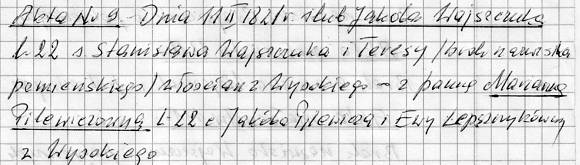 Akta Nr 9 - Dnia 11 II 1821 r. ślub Jakóba Wajszczuka
l-22 s Stanisława Wajszczuka i Teresy /brak nazwiska
panieńskiego/ włościan z Wysokiego - z panną Marianną
Pilewiczówną l-22 c Jakóba Pilewicza i Ewy Łepeszyków
z Wysokiego